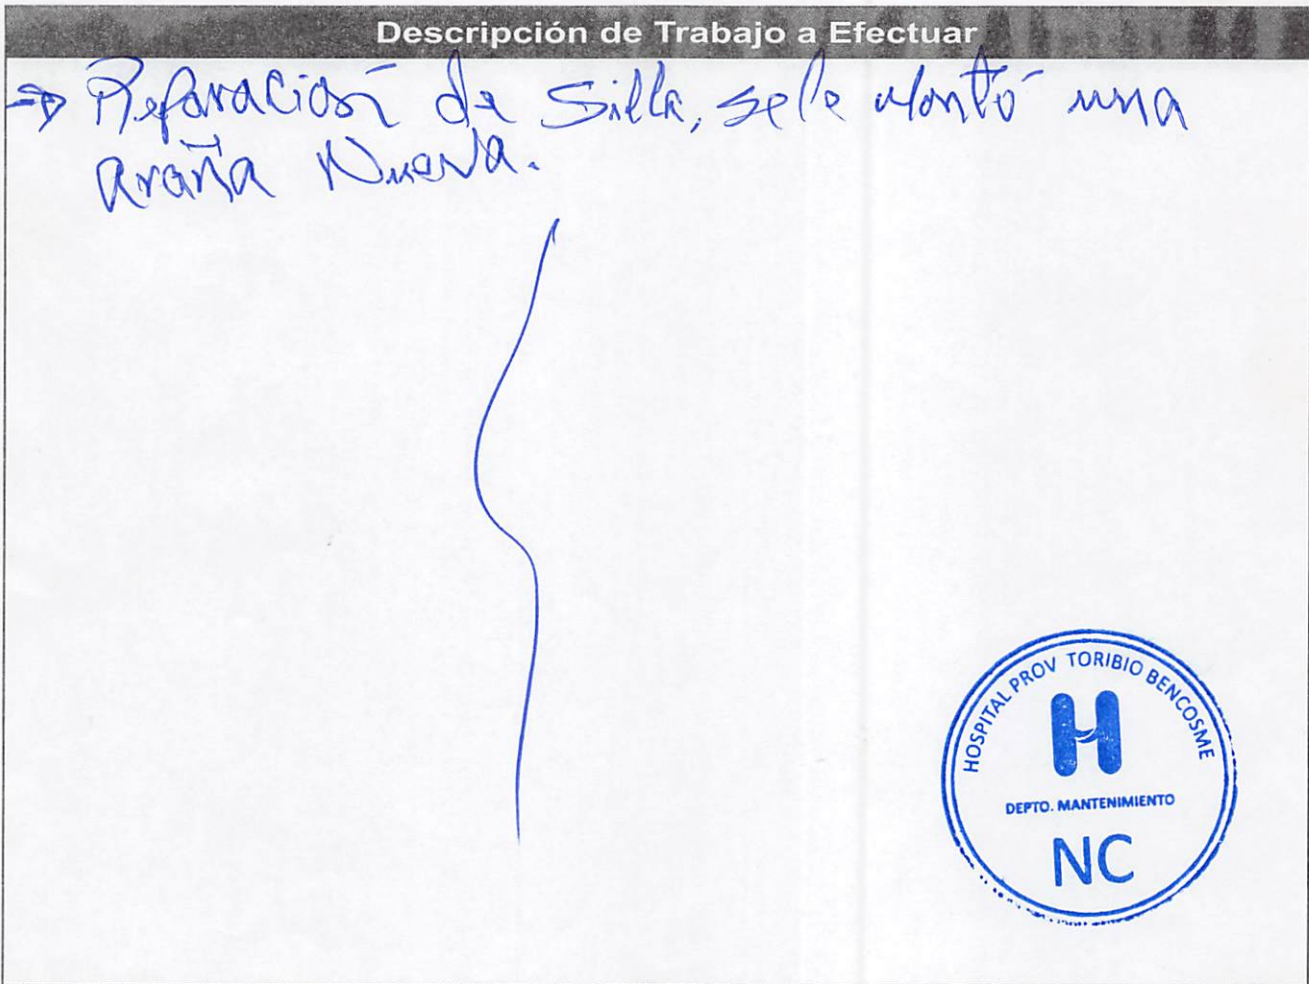 Descripción de Trabajo a Efectuar
→ Reparación de Silla, se le Montó una
araña Nueva.
HOSPITAL PROV TORIBIO BENCOSME
H
DEPTO. MANTENIMIENTO
NC